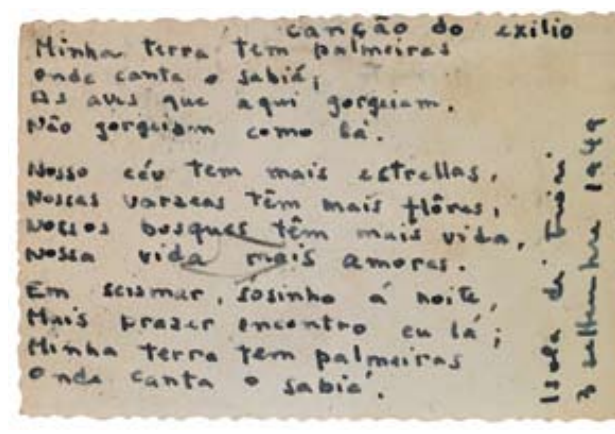 canção do exilio
Minha terra tem palmeiras
onde canta o sabiá;
As aves que aqui gorgeiam.
Não gorgeiam como lá.
Nosso céu tem mais estrellas,
Nossas varzeas têm mais flôres,
Nossos bosques têm mais vida,
Nossa vida mais amores.
Em scismar, sosinho á noite,
Mais prazer encontro eu lá;
Minha terra tem palmeiras
onde canta o sabiá.
Isola di
3 settembre 1949